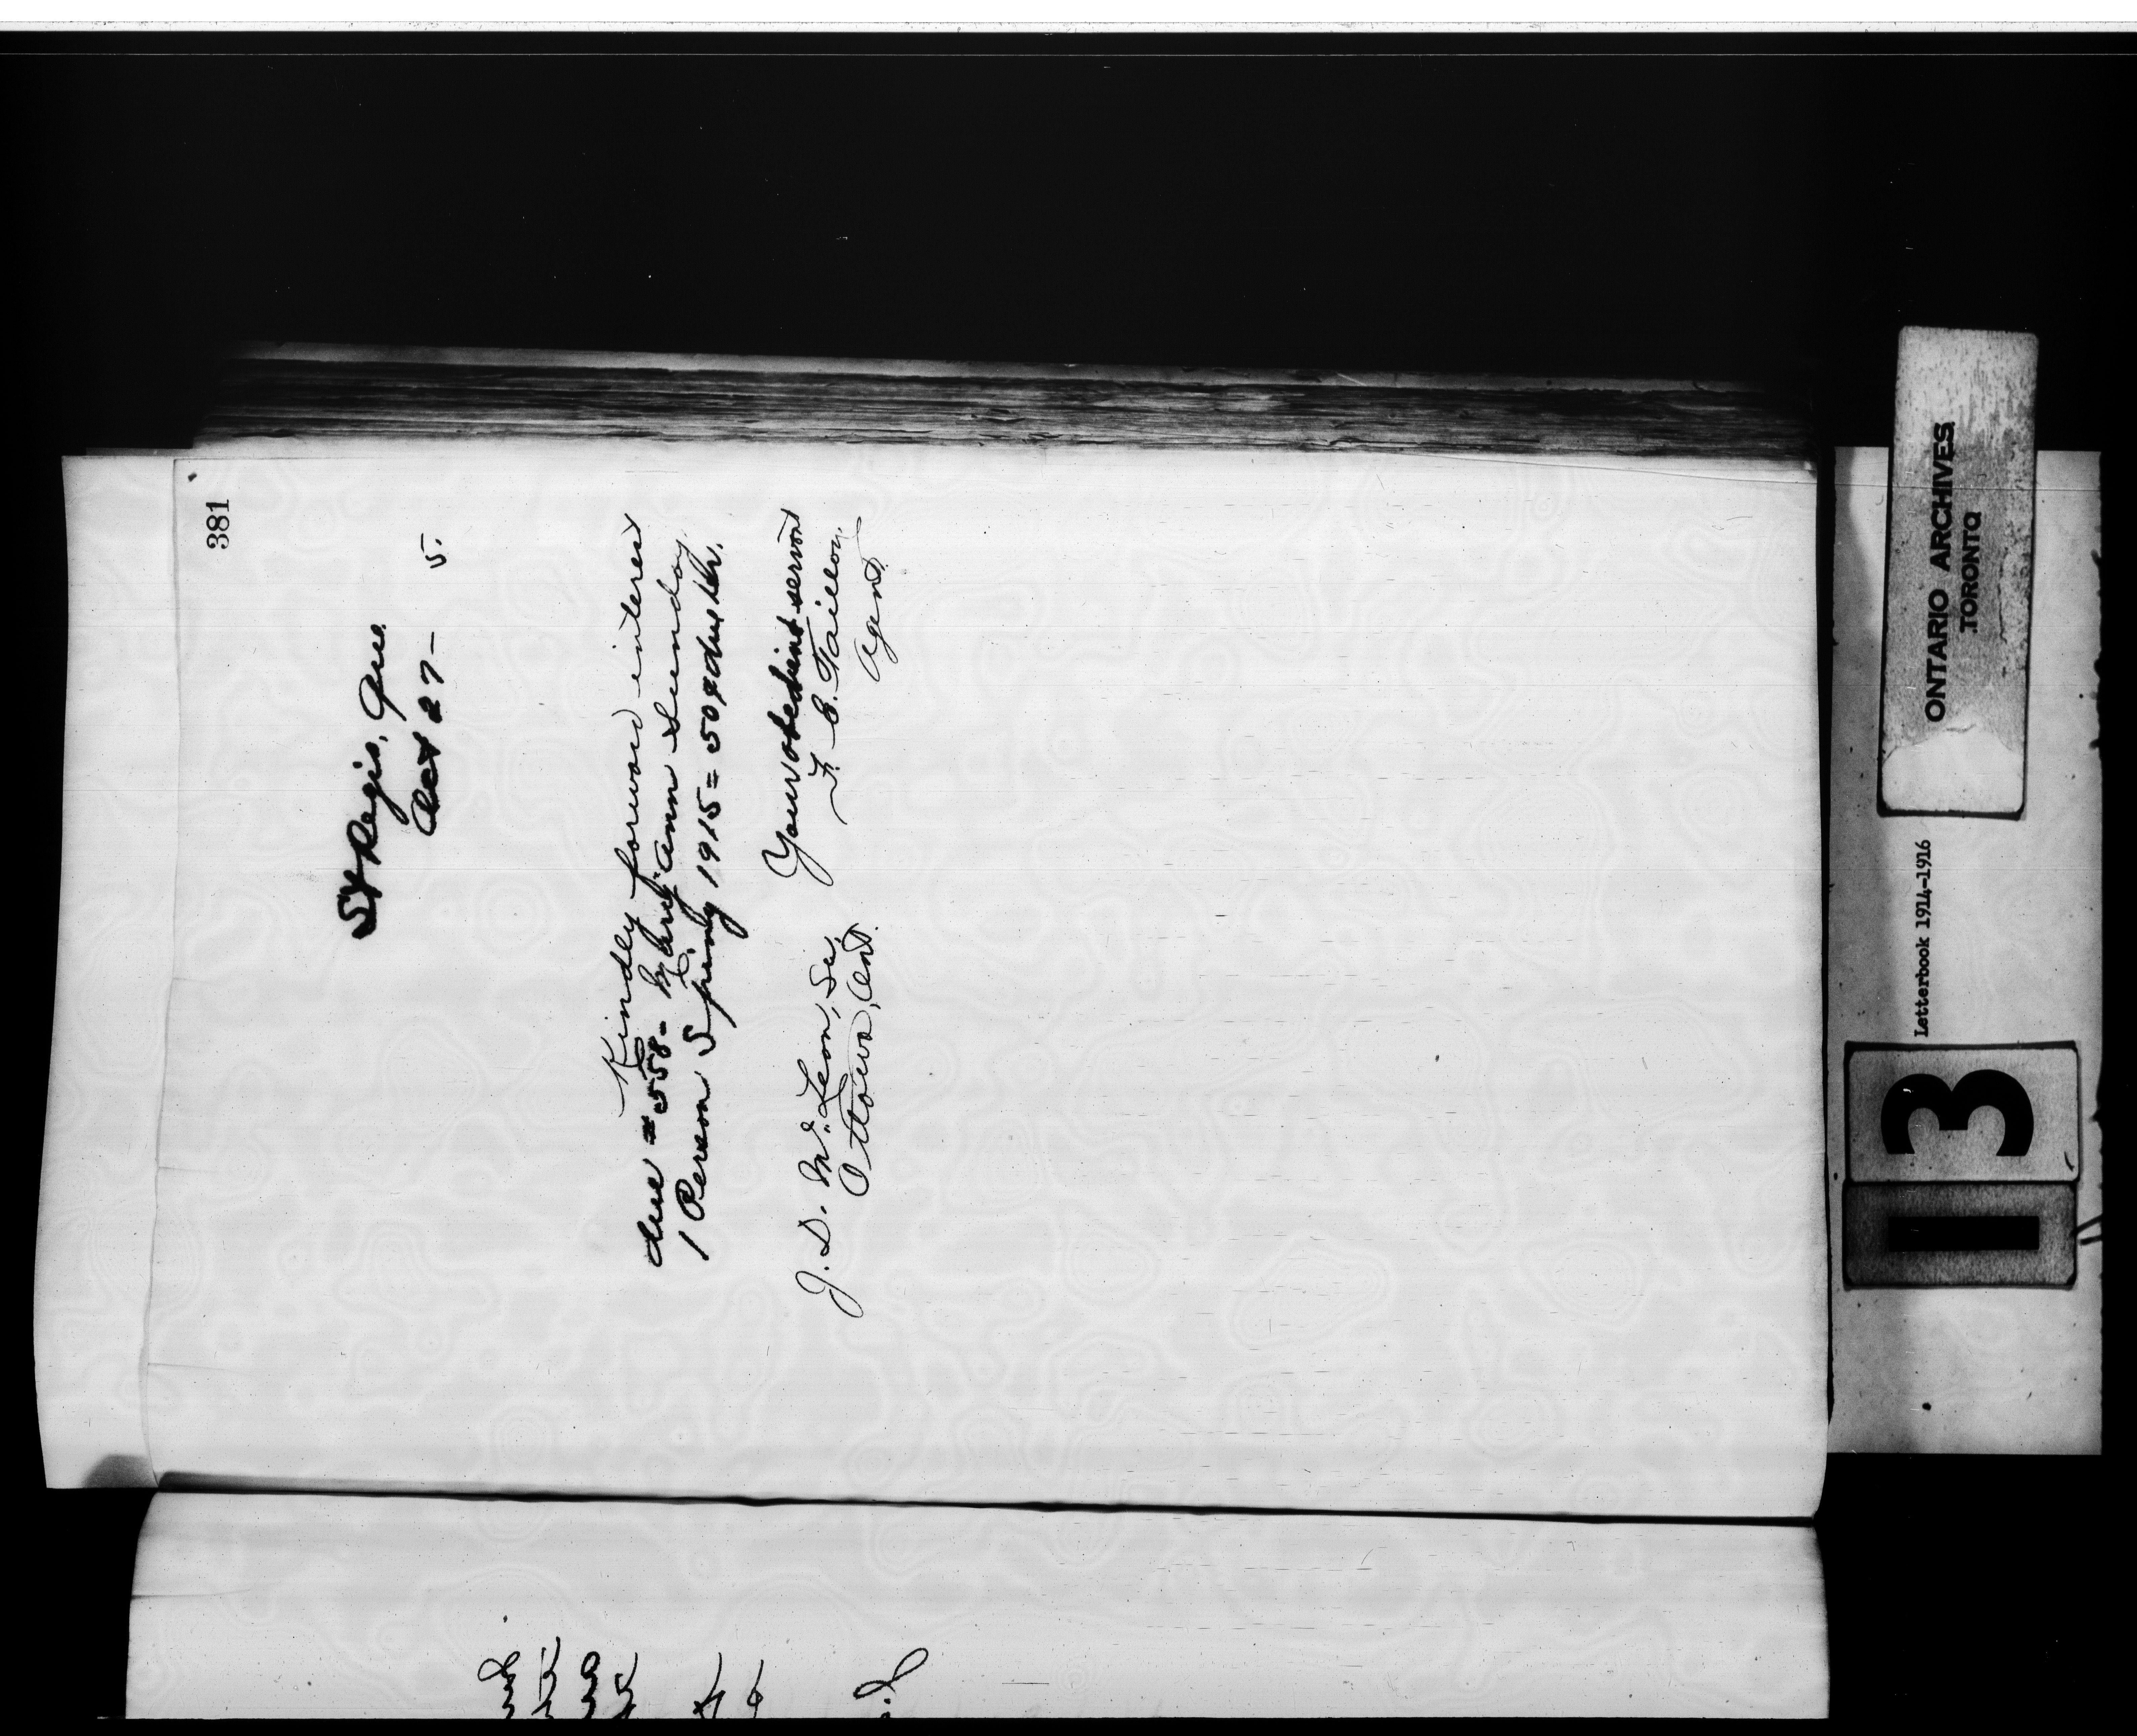 381
St Regis, Que.
Oct 27- 5.
Kindly forward interest
due #558- Mary Ann Sunday
1 Person Spring 1915 = 50¢ due her.
Your obedient servant
F. E. Taillon
Agent
J. D. McLean, Sec,
Ottawa, Ont.
ONTARIO ARCHIVES
TORONTO
Letterbook 1914-1916
13